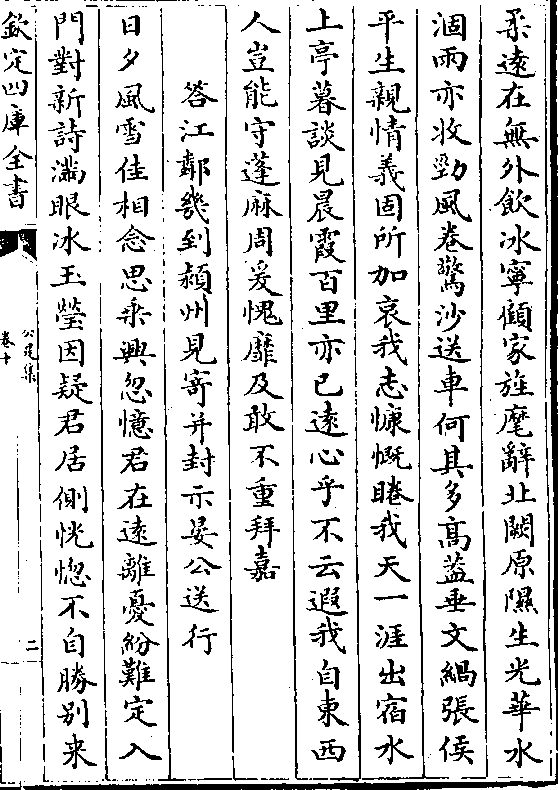 柔遠在無外飲冰寧顧家旌麾辭北闕原隰生光華水
涸雨亦收勁風卷驚沙送車何其多高蓋垂文緺張侯
平生親情義固所加哀我志慷慨睠我天一涯出宿水
上亭暮談見晨霞百里亦已遠心乎不云遐我自東西
人豈能守蓬麻周爰愧靡及敢不重拜嘉
答江鄰幾到潁州見寄并封示晏公送行
日夕風雪佳相念思乘興忽憶君在遠離憂紛難定入
門對新詩滿眼冰玉瑩因疑君居側恍惚不自勝别来
欽定四庫全書
公是集
卷十
二